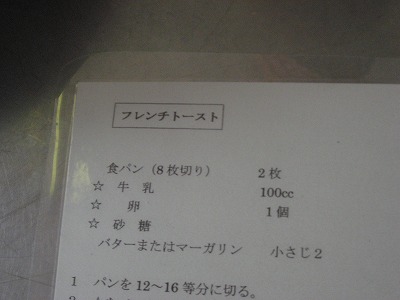 フレンチトースト
食パン（8枚切り） 2枚
☆ 牛 乳 100cc
☆ 卵 1個
☆ 砂 糖
バターまたはマーガリン 小さじ2
1 パンを12〜16等分に切る。